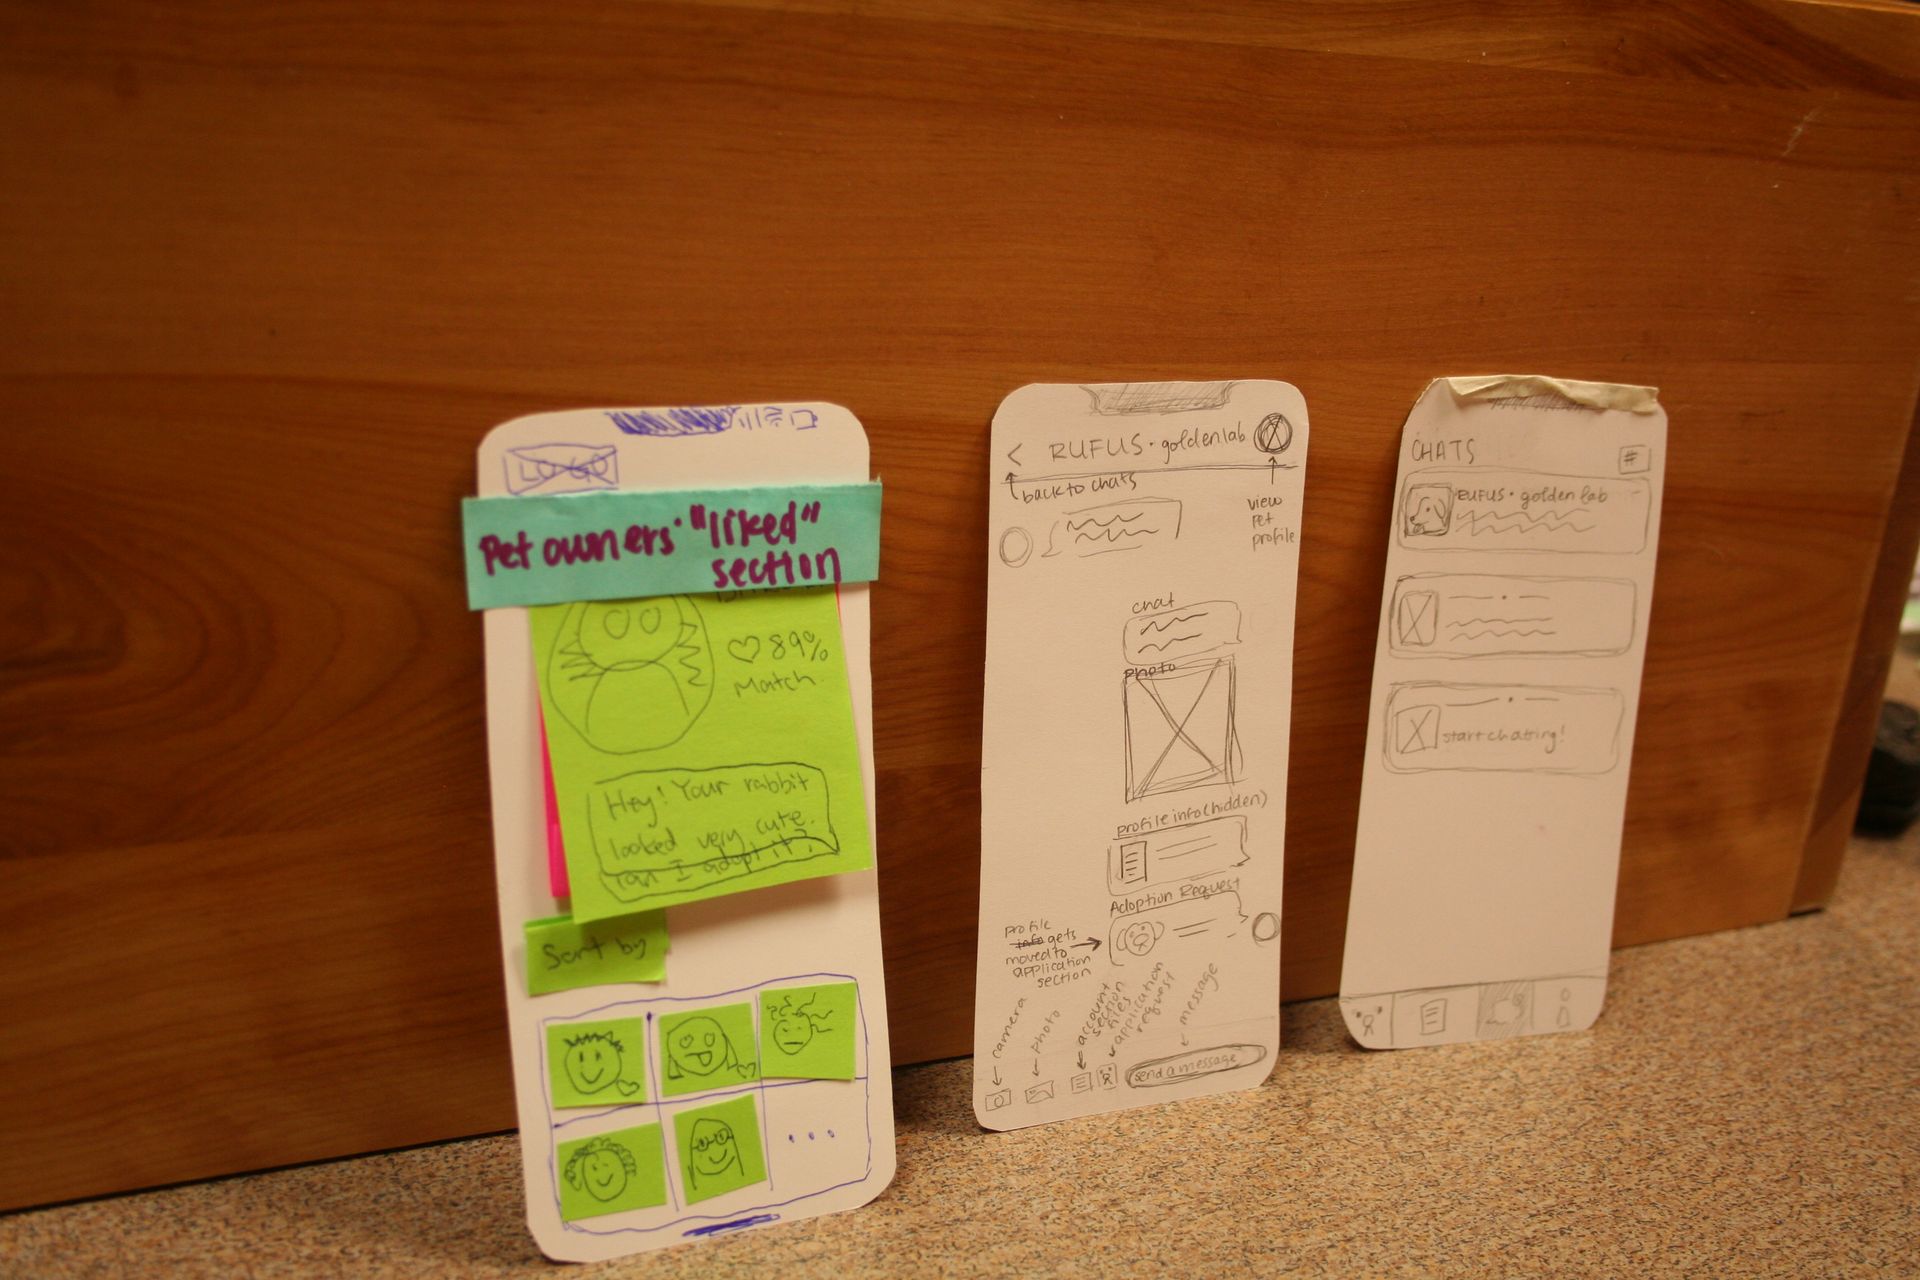 LOGO
Pet owners' "liked"
section
89%
Match
Hey! Your rabbit
looked very cute.
Can I adopt it?
Sort by
...
RUFUS • golden lab
back to chats
view
pet
profile
chat
photo
profile info (hidden)
Adoption Request
profile
info gets
moved to
application
section
camera
photo
account
section
files
application
request
message
send a message
CHATS
#
RUFUS • golden lab
start chatting!